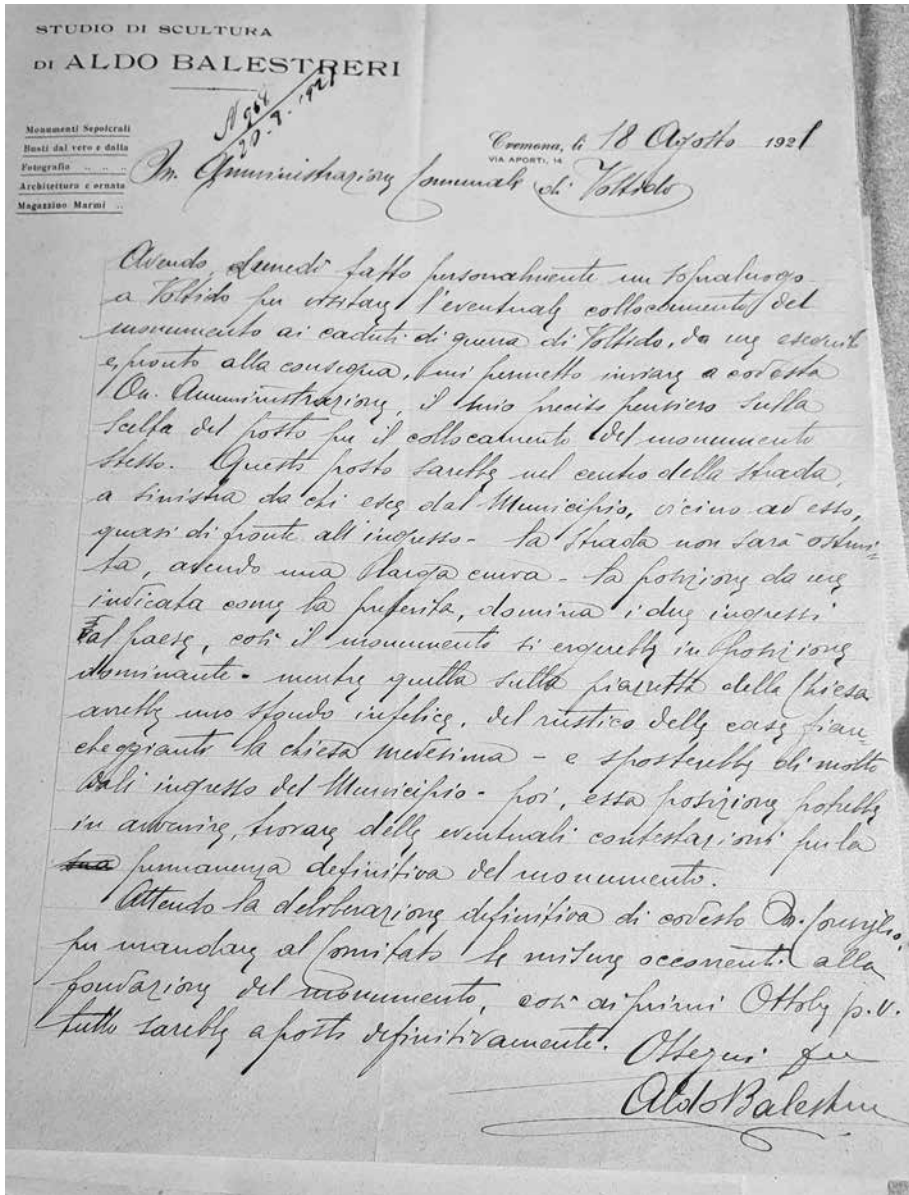 STUDIO DI SCULTURA
DI ALDO BALESTRERI
N 964
20.9.1921
Monumenti Sepolcrali
Busti dal vero e dalla
Fotografia .. .. ..
Architettura e ornata
Magazzino Marmi ..
Cremona, li 18 Agosto 1921
VIA APORTI, 14
On. Amministrazione Comunale di Voltido
Avendo Lunedì fatto personalmente un sopraluogo
a Voltido per visitare l'eventuale collocamento del
monumento ai caduti di guerra di Voltido, da me eseguito
e pronto alla consegna, mi permetto inviare a codesta
On. Amministrazione, il mio preciso pensiero sulla
scelta del posto per il collocamento del monumento
stesso. Questo posto sarebbe nel centro della strada,
a sinistra da chi esce dal Municipio, vicino ad esso,
quasi di fronte all'ingresso - la strada non sarà ostrui-
ta, avendo una larga curva - la posizione da me
indicata come la preferita, domina i due ingressi
al paese, così il monumento si ergerebbe in posizione
dominante - mentre quella sulla piazzetta della Chiesa
avrebbe uno sfondo infelice, del rustico delle case fian-
cheggianti la chiesa medesima - e sposterebbe di molto
dall'ingresso del Municipio - poi, essa posizione potrebbe
in avvenire, trovare delle eventuali contestazioni per la
sua permanenza definitiva del monumento.
Attendo la deliberazione definitiva di codesto On. Consiglio,
per mandare al Comitato le misure occorrenti alla
fondazione del monumento, così ai primi Ottobre p.v.
tutto sarebbe a posto definitivamente.
Ossequi
Aldo Balestreri